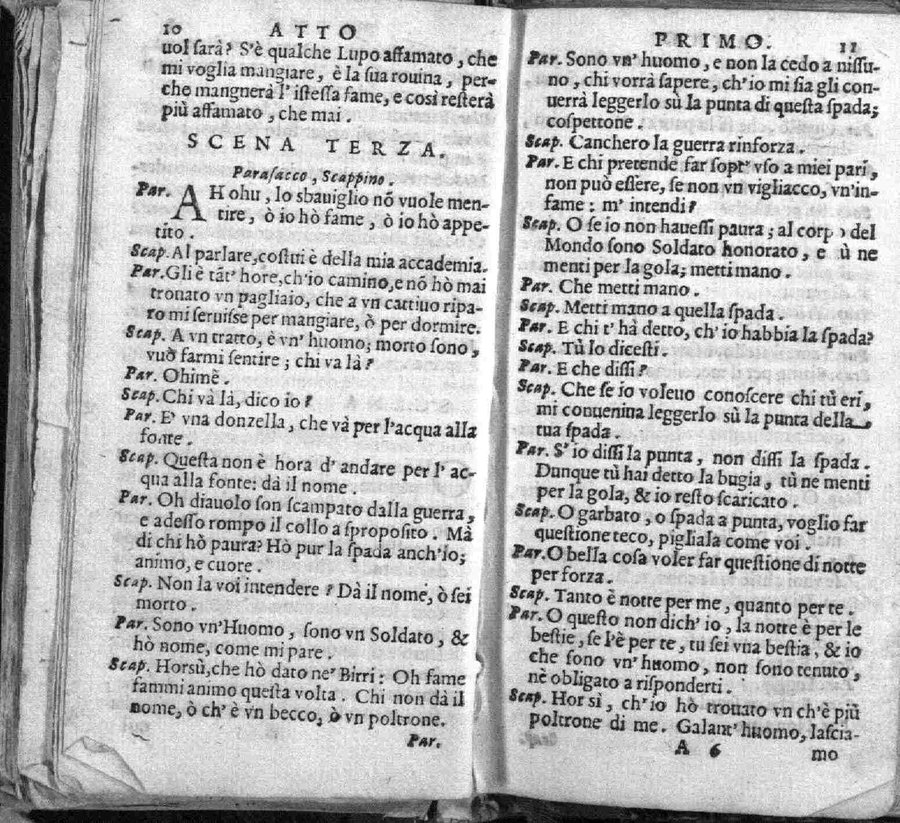 10 ATTO
uol sarà? S'è qualche Lupo affamato, che
mi voglia mangiare, è la sua rouina, per-
che mangnerà l'istessa fame, e così resterà
più affamato, che mai.
SCENA TERZA.
Parasacco, Scappino.
Par. AH ohu, lo sbauiglio nõ vuole men-
tire, ò io hò fame, ò io hò appe-
tito.
Scap. Al parlare, costui è della mia accademia.
Par. Gli è tãt' hore, ch'io camino, e nõ hò mai
trouato vn pagliaio, che a vn cattiuo ripa-
ro mi seruisse per mangiare, ò per dormire.
Scap. A vn tratto, è vn' huomo; morto sono,
vuð farmi sentire; chi va là?
Par. Ohimè.
Scap. Chi và là, dico io?
Par. E' vna donzella, che và per l'acqua alla
fonte.
Scap. Questa non è hora d'andare per l'ac-
qua alla fonte: dà il nome.
Par. Oh diauolo son scampato dalla guerra,
e adesso rompo il collo a sproposito. Mà
di chi hò paura? Hò pur la spada anch'io;
animo, e cuore.
Scap. Non la voi intendere? Dà il nome, ò sei
morto.
Par. Sono vn'Huomo, sono vn Soldato, &
hò nome, come mi pare.
Scap. Horsù, che hò dato ne' Birri: Oh fame
fammi animo questa volta. Chi non dà il
nome, ò ch'è vn becco, ò vn poltrone.
Par.
PRIMO. 11
Par. Sono vn' huomo, e non la cedo a nissu-
no, chi vorrà sapere, ch'io mi sia gli con-
uerrà leggerlo sù la punta di questa spada;
cospettone.
Scap. Canchero la guerra rinforza.
Par. E chi pretende far sopr' vso a miei pari,
non può essere, se non vn vigliacco, vn'in-
fame: m' intendi?
Scap. O se io non hauessi paura; al corp del
Mondo sono Soldato honorato, e ù ne
menti per la gola; metti mano.
Par. Che metti mano.
Scap. Metti mano a quella spada.
Par. E chi t' hà detto, ch' io habbia la spada?
Scap. Tù lo dicesti.
Par. E che dissi?
Scap. Che se io voleuo conoscere chi tù eri,
mi conuenina leggerlo sù la punta della
tua spada.
Par. S' io dissi la punta, non dissi la spada.
Dunque tù hai detto la bugia, tù ne menti
per la gola, & io resto scaricato.
Scap. O garbato, o spada a punta, voglio far
questione teco, pigliala come voi.
Par. O bella cosa voler far questione di notte
per forza.
Scap. Tanto è notte per me, quanto per te.
Par. O questo non dich' io, la notte è per le
bestie, se l'è per te, tu sei vna bestia, & io
che sono vn' huomo, non sono tenuto,
nè obligato a risponderti.
Scap. Hor sì, ch' io hò trouato vn ch'è più
poltrone di me. Galant' huomo, lascia-
A 6 mo